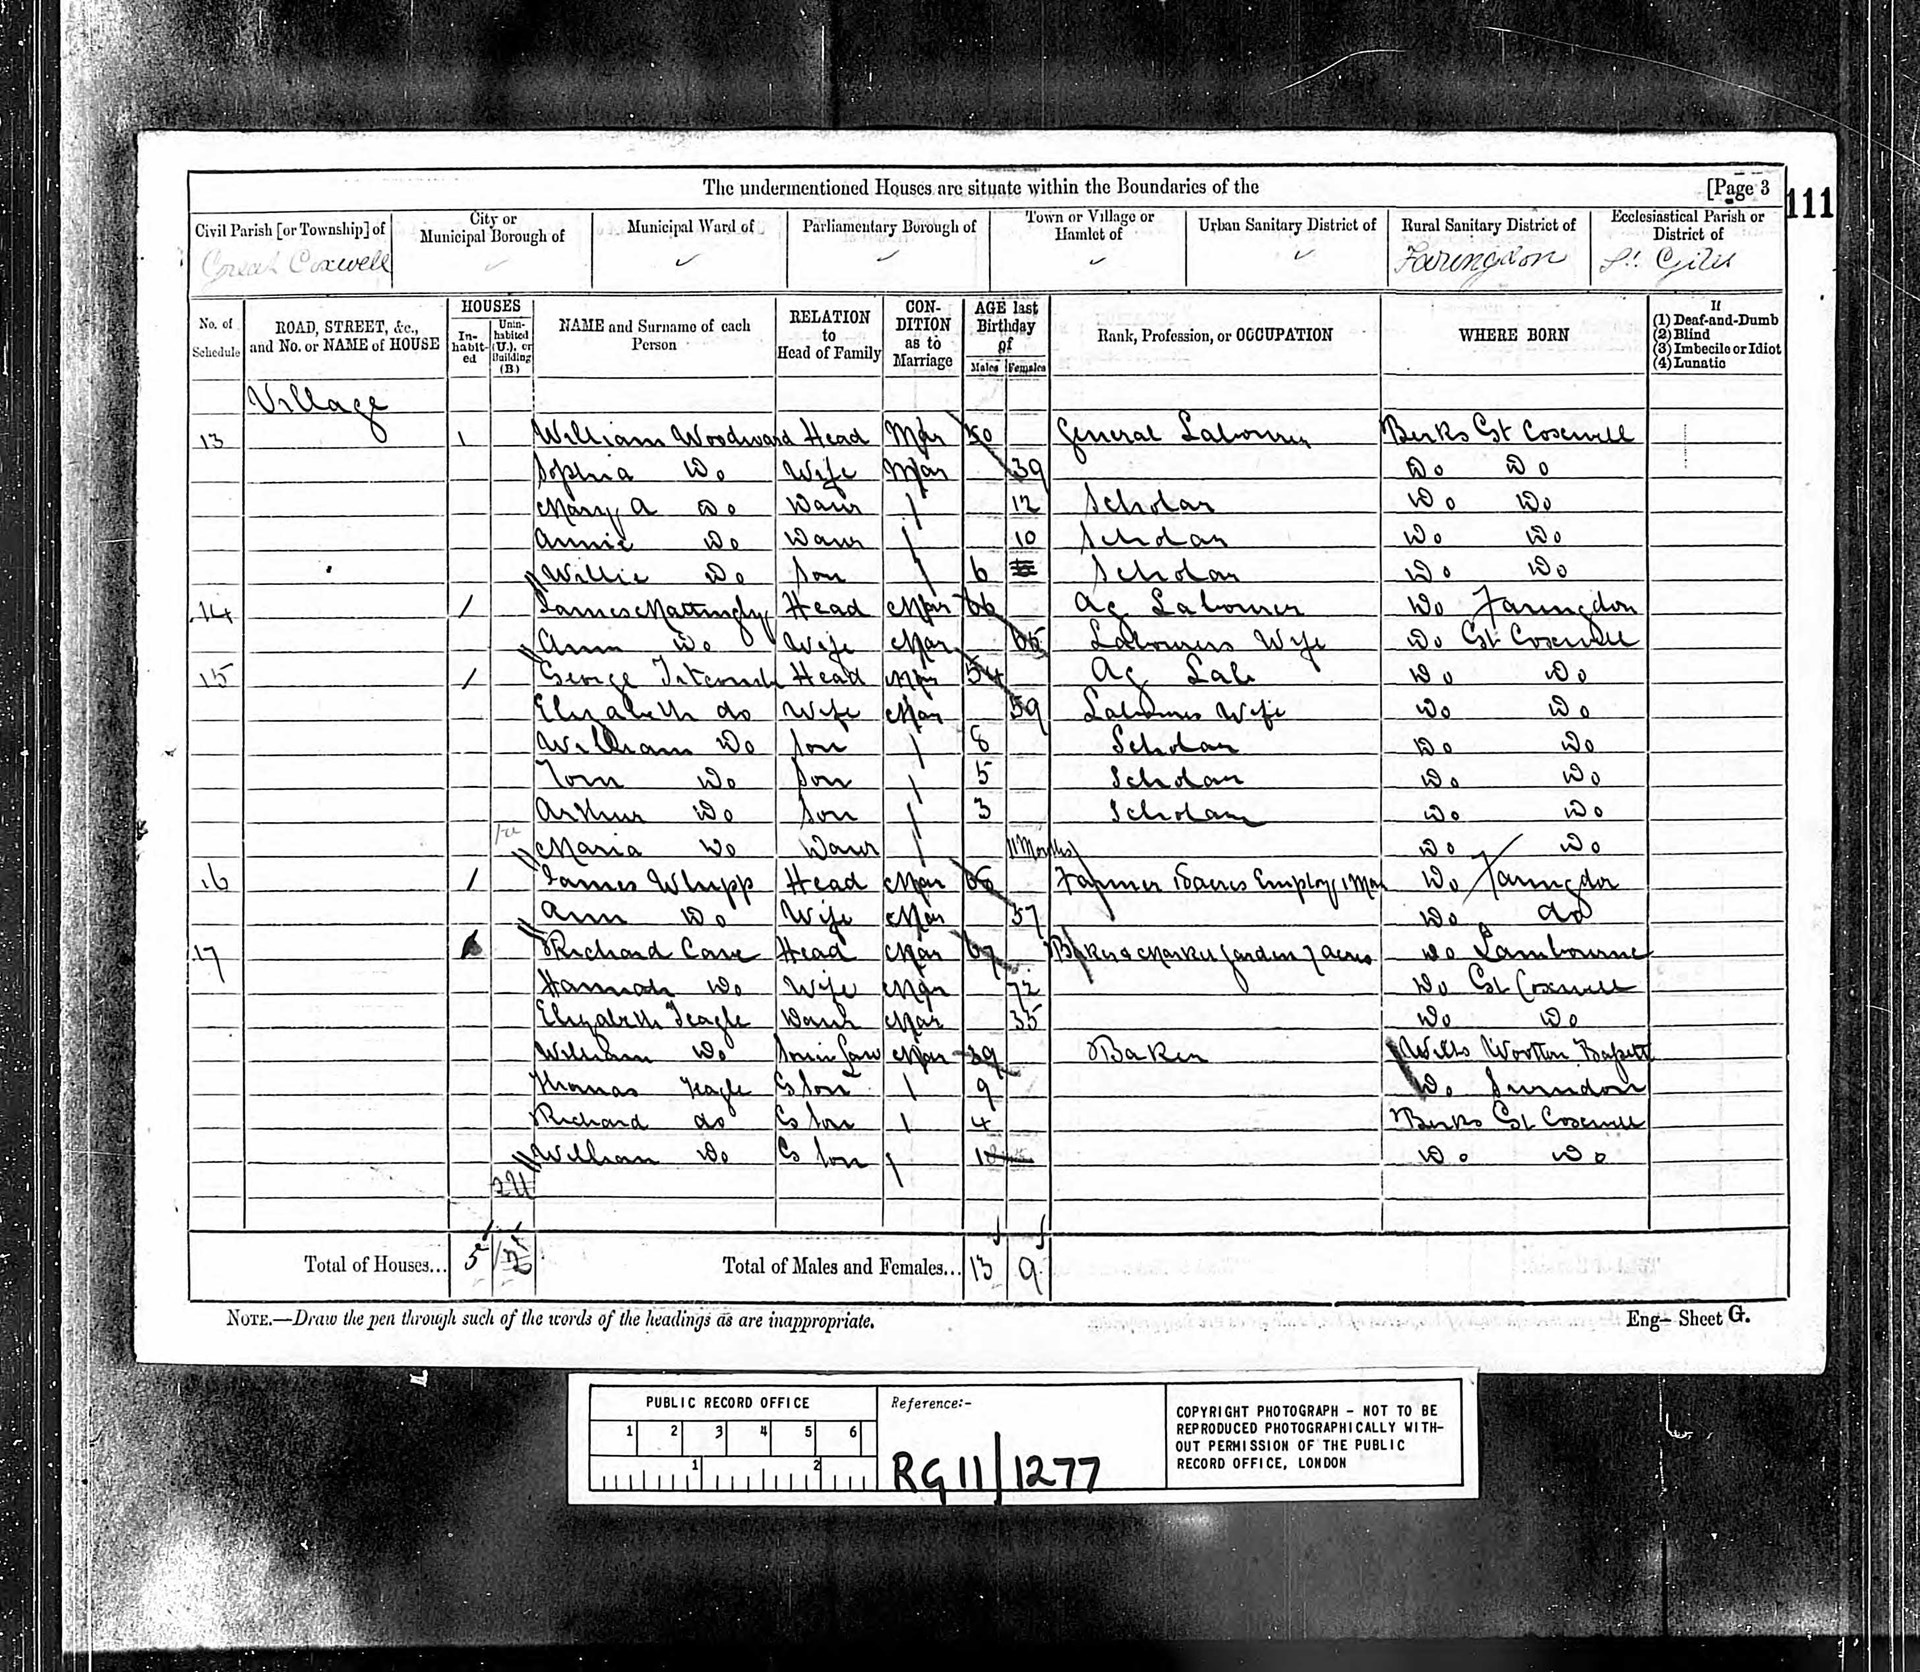 The undermentioned Houses are situate within the Boundaries of the [Page 3
111
Civil Parish [or Township] of City or Municipal Borough of Municipal Ward of Parliamentary Borough of Town or Village or Hamlet of Urban Sanitary District of Rural Sanitary District of Ecclesiastical Parish or District of
Great Coxwell ✓ ✓ ✓ ✓ ✓ Faringdon St. Giles
No. of Schedule ROAD, STREET, &c., and No. or NAME of HOUSE HOUSES Inhabited Uninhabited (U.), or Building (B) NAME and Surname of each Person RELATION to Head of Family CONDITION as to Marriage AGE last Birthday of Males Females Rank, Profession, or OCCUPATION WHERE BORN If (1) Deaf-and-Dumb (2) Blind (3) Imbecile or Idiot (4) Lunatic
Village
13 1 William Woodward Head Mar 50 General Labourer Berks Gt Coxwell
Sophia Do Wife Mar 39 Do Do
Mary A Do Daur 12 Scholar Do Do
Annie Do Daur 10 Scholar Do Do
Willie Do Son 6 Scholar Do Do
14 1 James Mattingly Head Mar 66 Ag Labourer Do Faringdon
Ann Do Wife Mar 65 Labourers Wife Do Gt Coxwell
15 1 George Head Mar 54 Ag Lab Do Do
Elizabeth do Wife Mar 39 Labourers Wife Do Do
William Do Son 8 Scholar Do Do
Tom Do Son 5 Scholar Do Do
Arthur Do Son 3 Scholar Do Do
Maria Do Daur 11 Months Do Do
16 1 James Whipp Head Mar Farmer acres Employg 1 Man Do Faringdon
Ann Do Wife Mar 57 Do do
17 Richard Cave Head Mar 67 Baker & Market Garden 7 Acres Do Lambourne
Hannah Do Wife Mar 72 Do Gt Coxwell
Elizabeth Teagle Daur Mar 35 Do Do
William Do Son in law Mar 39 Baker Wilts Wootton Bassett
Thomas Teagle G Son 9 Do Swindon
Richard do G Son 4 Berks Gt Coxwell
William Do G Son 1 Do Do
Total of Houses... 5 Total of Males and Females... 13 9
NOTE.—Draw the pen through such of the words of the headings as are inappropriate.
Eng— Sheet G.
PUBLIC RECORD OFFICE
1 2 3 4 5 6
1 2
Reference:-
RG 11/1277
COPYRIGHT PHOTOGRAPH - NOT TO BE
REPRODUCED PHOTOGRAPHICALLY WITH-
OUT PERMISSION OF THE PUBLIC
RECORD OFFICE, LONDON